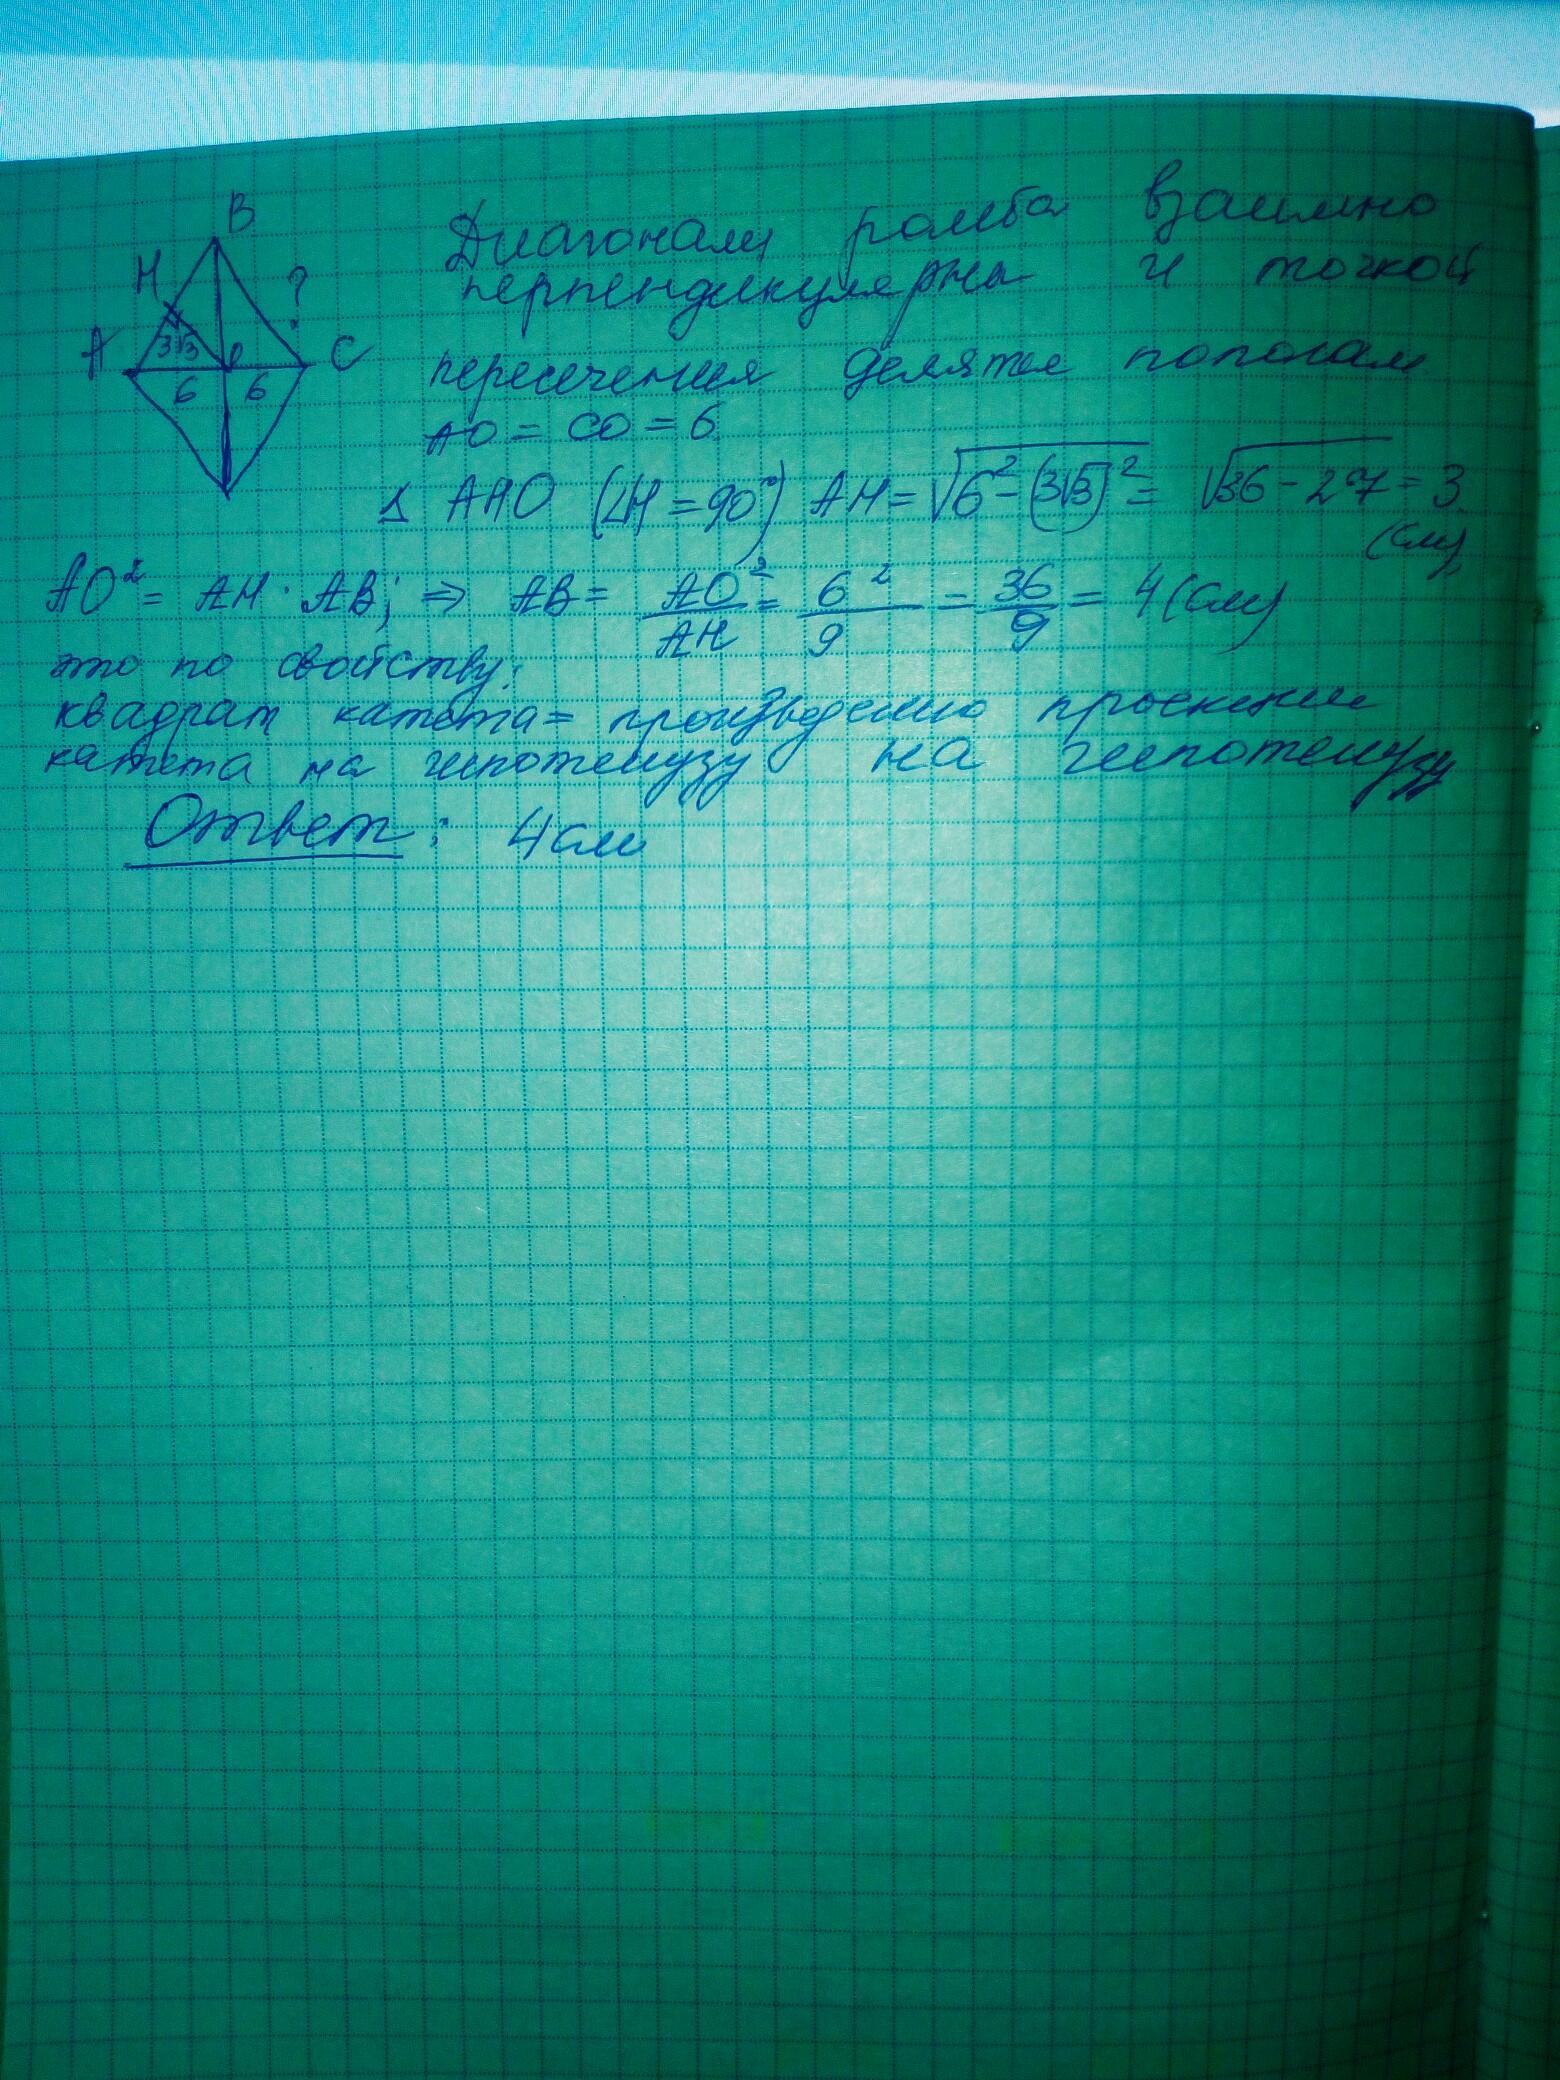 B
H
?
A
3√3
O
C
6
6
Диагонали ромба взаимно
перпендикулярны и точкой
пересечения делятся пополам
AO = CO = 6
Δ AHO (∠H = 90°) AH = √6² - (3√3)² = √36 - 27 = 3
(см)
AO² = AH · AB; ⇒ AB = AO²/AH = 6²/9 = 36/9 = 4 (см)
это по свойству:
квадрат катета = произведению проекции
катета на гипотенузу на гипотенузу
Ответ: 4 см